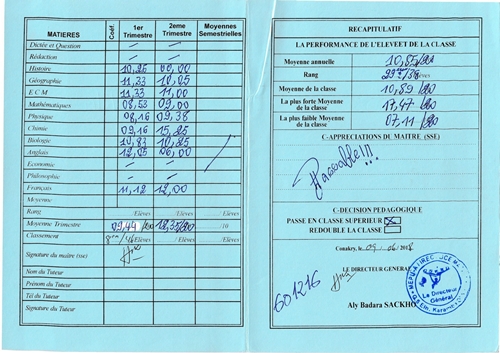 MATIERES Coéf. 1er Trimestre 2eme Trimestre Moyennes Semestrielles
Dictée et Question
Rédaction
Histoire 10,25 00,00
Géographie 11,33 10,05
E C M 11,33 11,00
Mathématiques 08,53 09,00
Physique 08,16 09,38
Chimie 09,16 15,25
Biologie 10,83 10,25
Anglais 12,05 06,00
Economie
Philosophie
Français 11,12 12,00
Moyenne
Rang /Elèves /Elèves /Elèves
Moyenne Trimestre 09,44 /10
Classement /Elèves /Elèves
Signature du maître (sse)
Nom du Tuteur
Prénom du Tuteur
Tél du Tuteur
Signature du Tuteur
RECAPITULATIF
LA PERFORMANCE DE L'ELEVEET DE LA CLASSE
Moyenne annuelle 10,85/20
Rang /36 Elèves
Moyenne de la classe 10,89 /20
La plus forte Moyenne de la classe 17,47 /20
La plus faible Moyenne de la classe 07,11 /20
C-APPRECIATIONS DU MAÎTRE (SSE)
Passable!!!
C-DECISION PEDAGOGIQUE
PASSE EN CLASSE SUPERIEUR
REDOUBLE LA CLASSE
Conakry, le 09-06/201
LE DIRECTEUR GENERAL
601216
Le Directeur Général
Aly Badara SACKHO